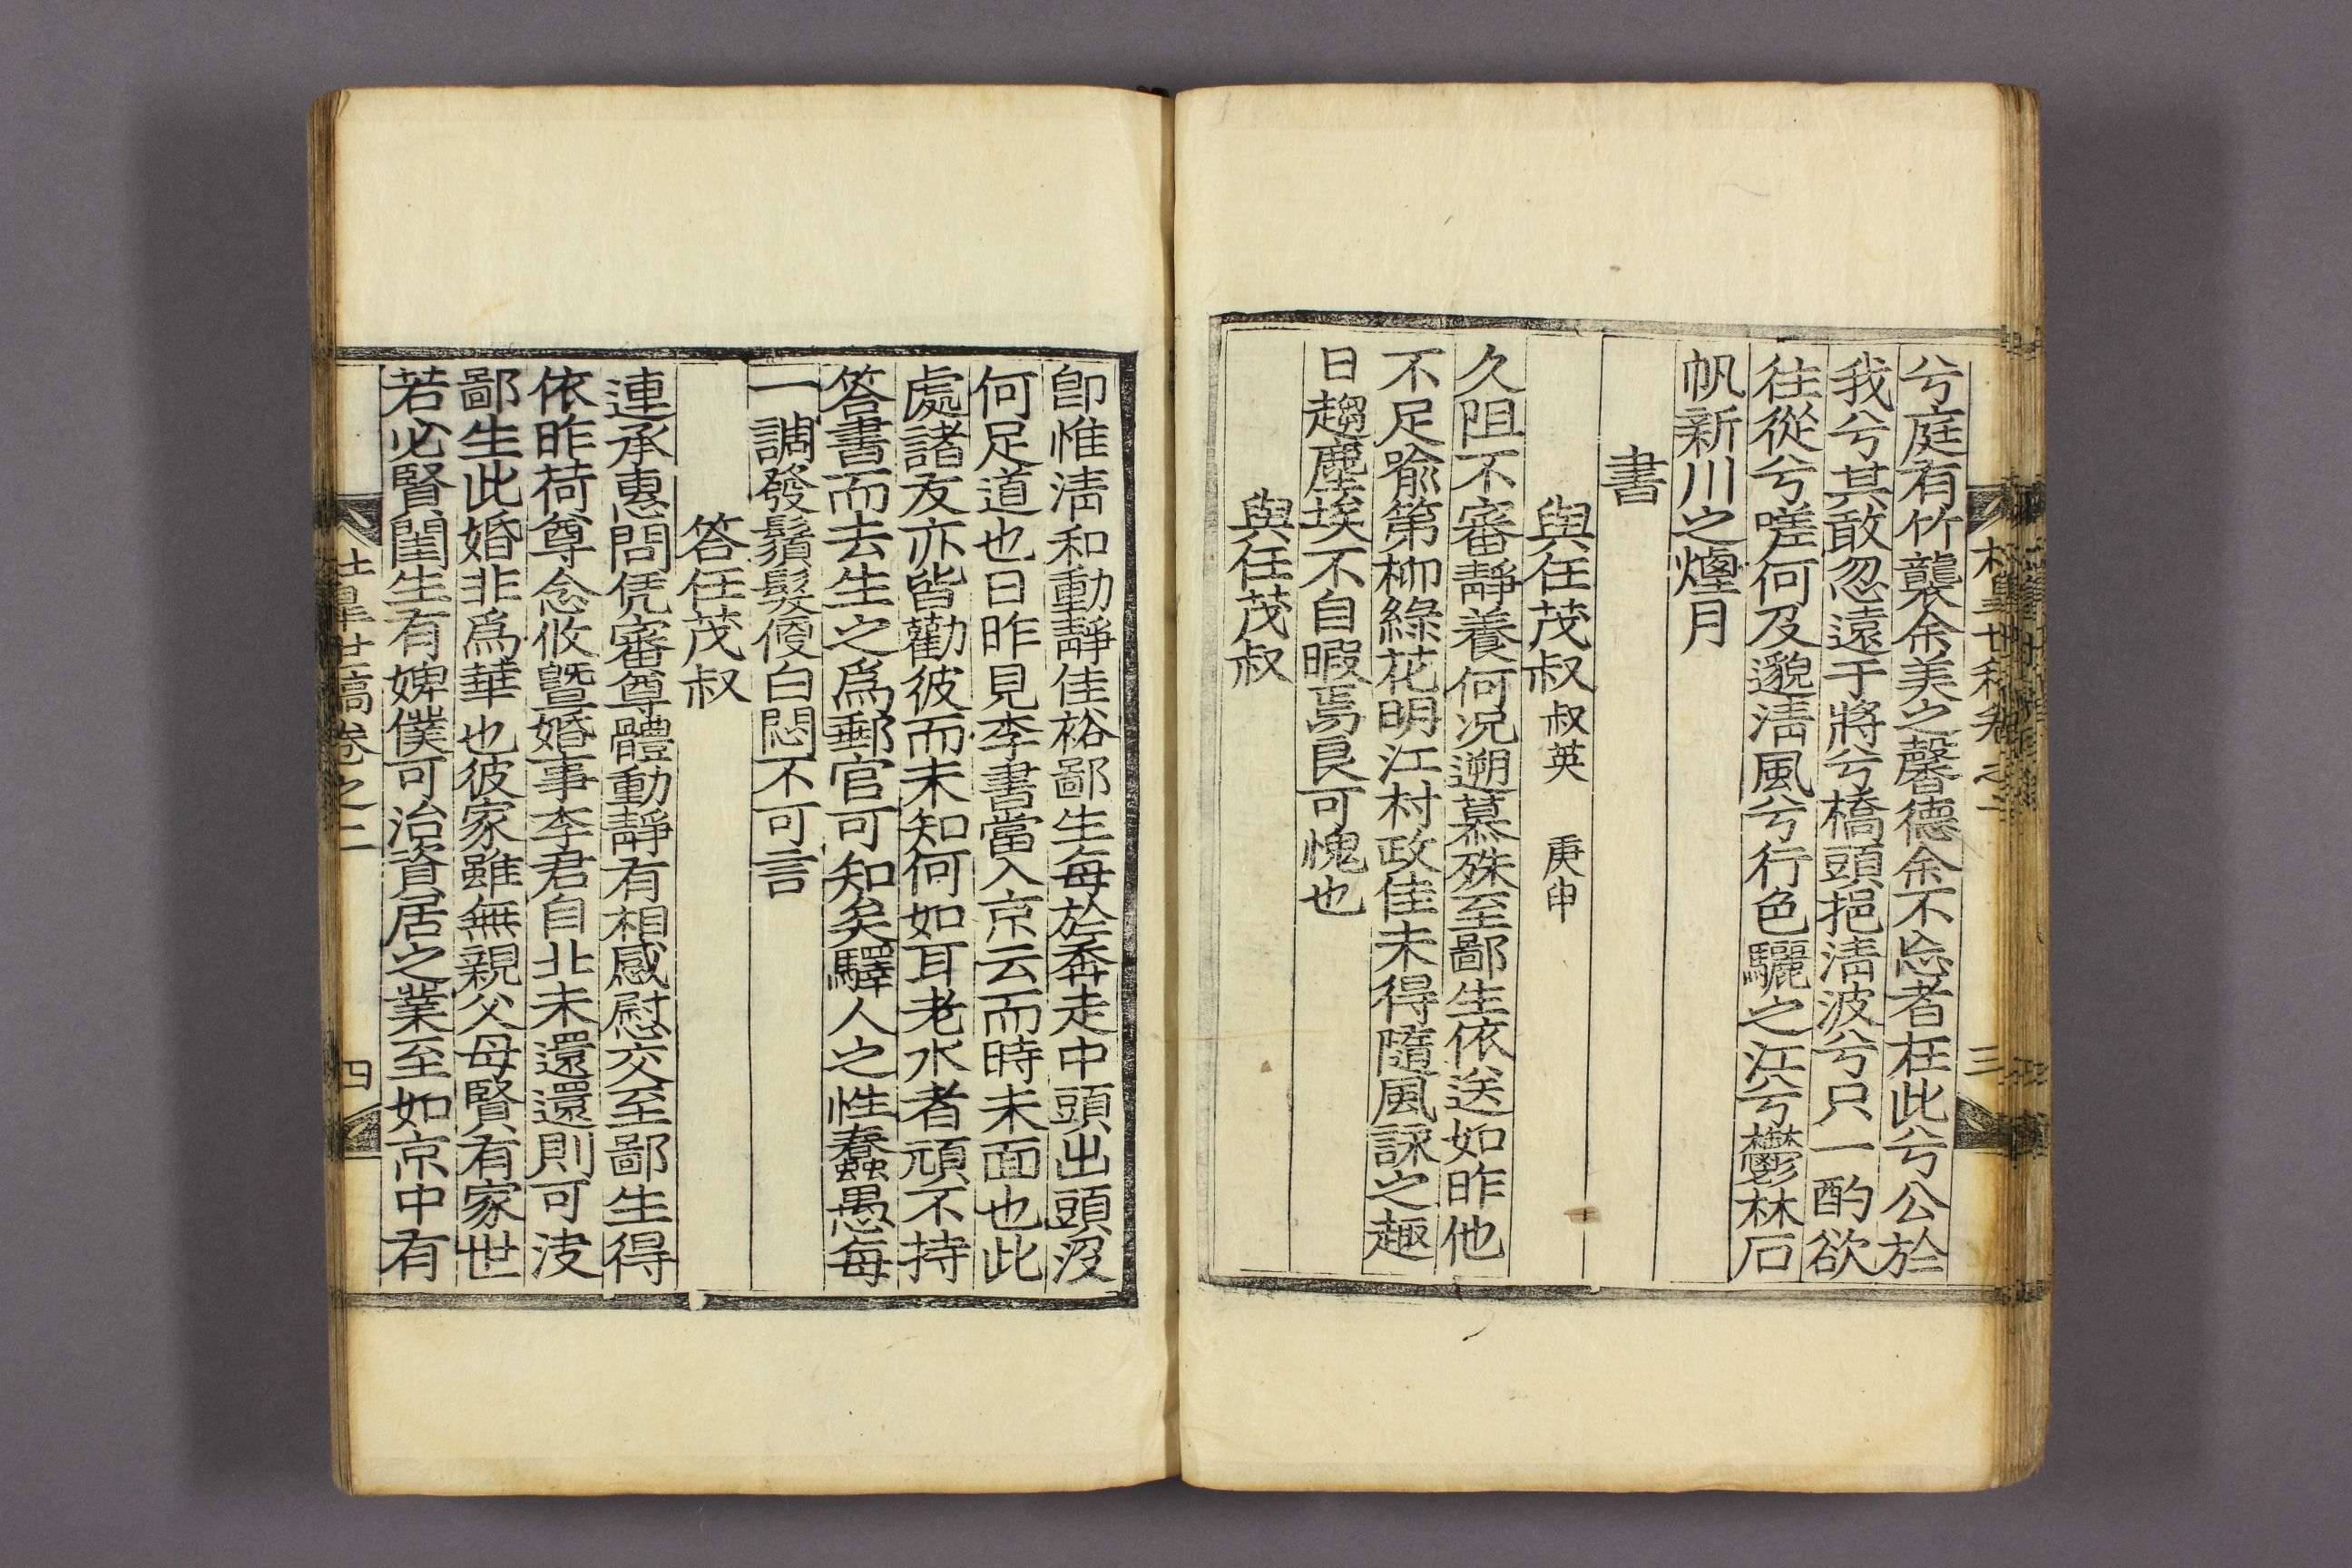 兮庭有竹襲余美之馨德余不忘者在此兮公於
我兮其敢忽遠于將兮橋頭挹淸波兮只一酌欲
往從兮嗟何及邈淸風兮行色驪之江兮鬱林石
帆新川之煙月
書
與任茂叔 叔英 庚申
久阻不審靜養何况遡慕殊至鄙生依送如昨他
不足喩第柳綠花明江村政佳未得隨風詠之趣
日趨塵埃不自暇焉良可愧也
與任茂叔
卽惟淸和動靜佳裕鄙生每於奔走中頭出頭沒
何足道也日昨見李書當入京云而時未面也此
處諸友亦皆勸彼而未知何如耳老氷者頑不持
答書而去生之爲郵官可知矣驛人之性蠢愚每
一調發鬚髮優白悶不可言
答任茂叔
連承惠問凭審尊體動靜有相感慰交至鄙生得
依昨荷尊念攸曁婚事李君自北未還還則可決
鄙生此婚非爲華也彼家雖無親父母賢有家世
若必賢閨生有婢僕可治資居之業至如京中有
世稿卷之二
四
三